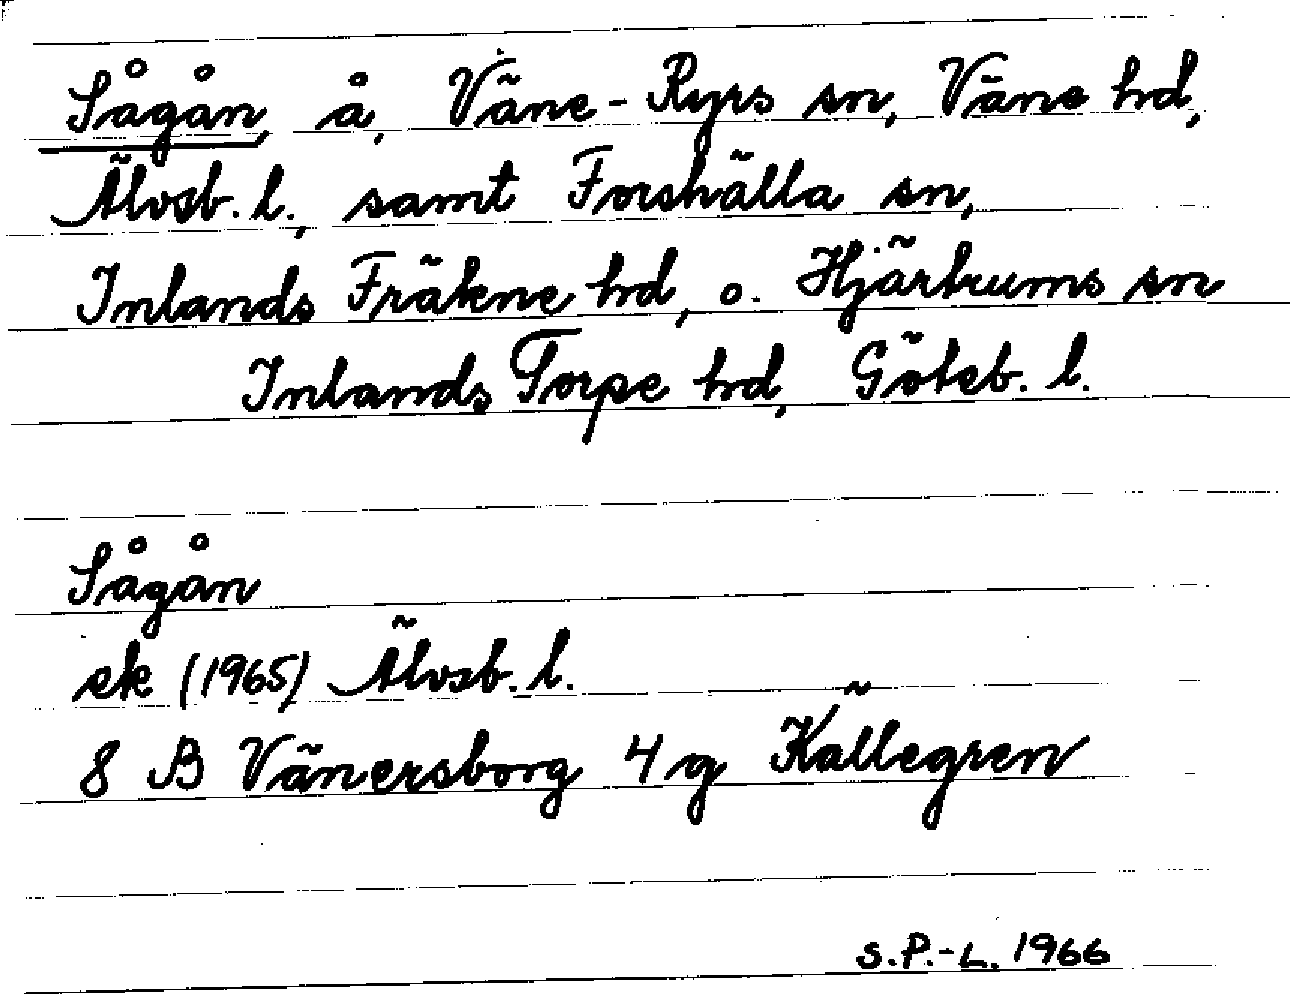 Sågån, å, Väne-Ryrs sn, Väne hd,
Älvsb. l., samt Forshälla sn,
Inlands Fräkne hd, o. Hjärtums sn
Inlands Torpe hd, Göteb. l.
Sågån
ek (1965) Älvsb. l.
8 B Vänersborg 4 g Källegren
S.P.-L. 1966